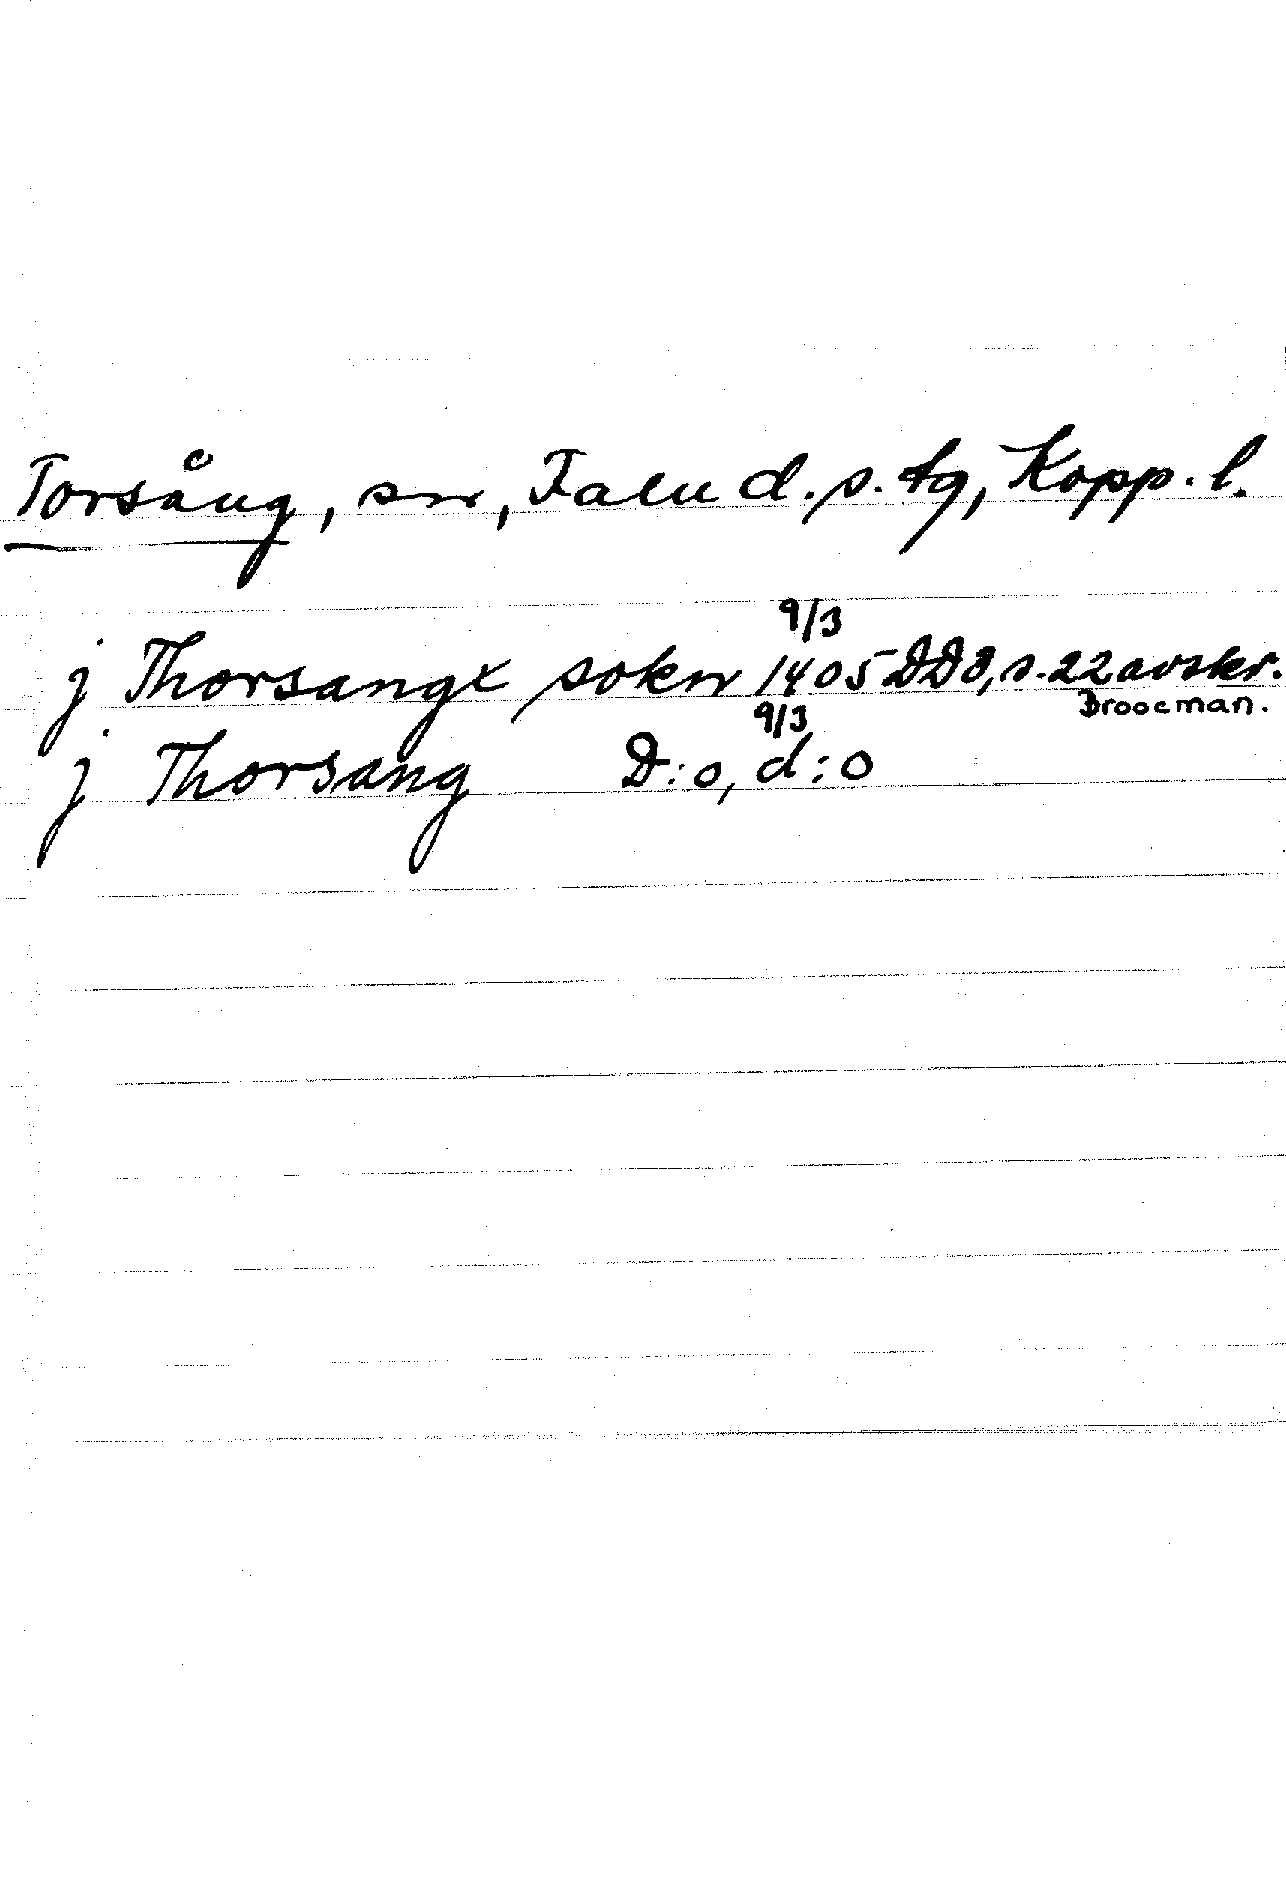 Torsång, sn, Falu d.s. tg, Kopp. l.
9/3
j Thorsangx sokn 1405 DD3, s. 22 avskr.
Brooeman.
9/3
j Thorsang D:o, d:o